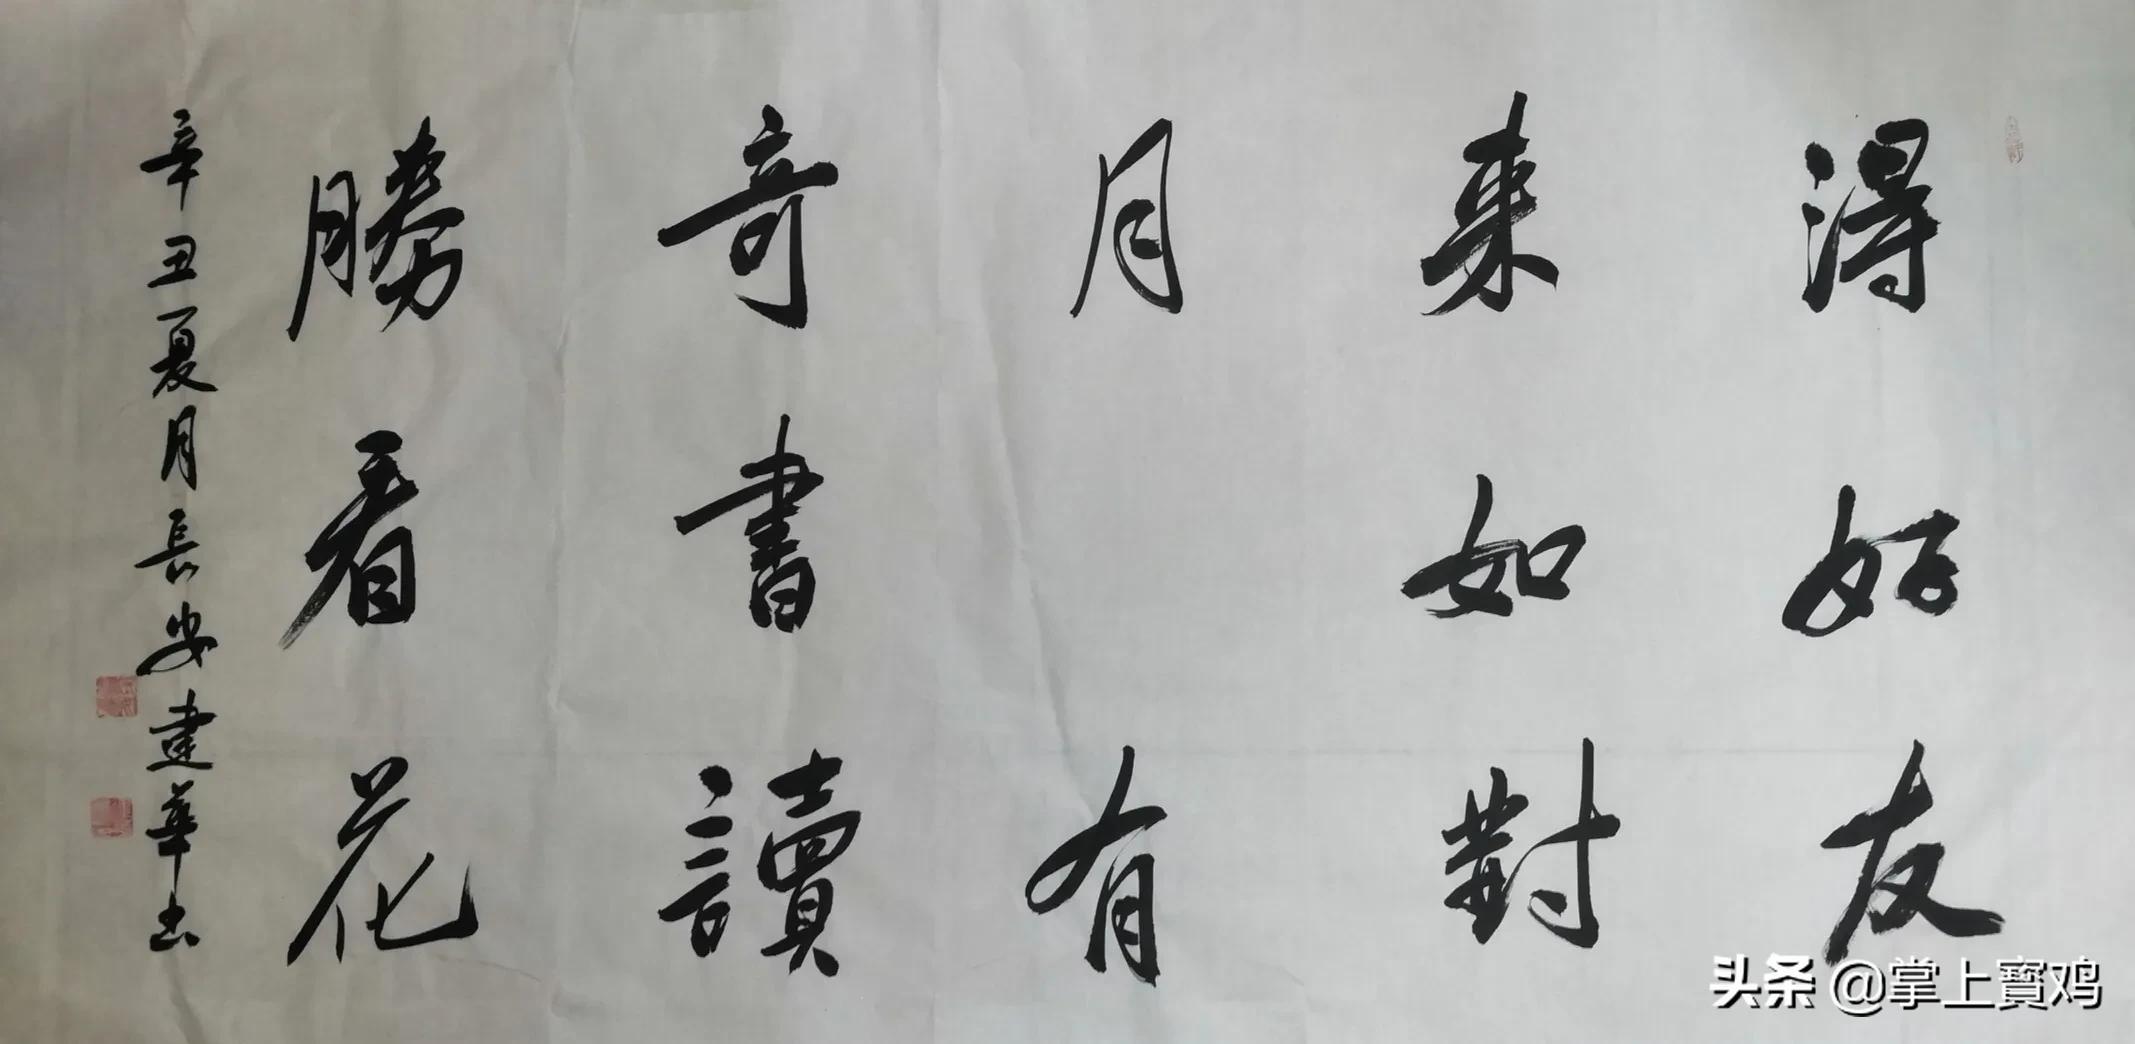 得好友
来如對
月 有
奇書讀
勝看花
辛丑夏月長安建華书
头条 @掌上寳鸡